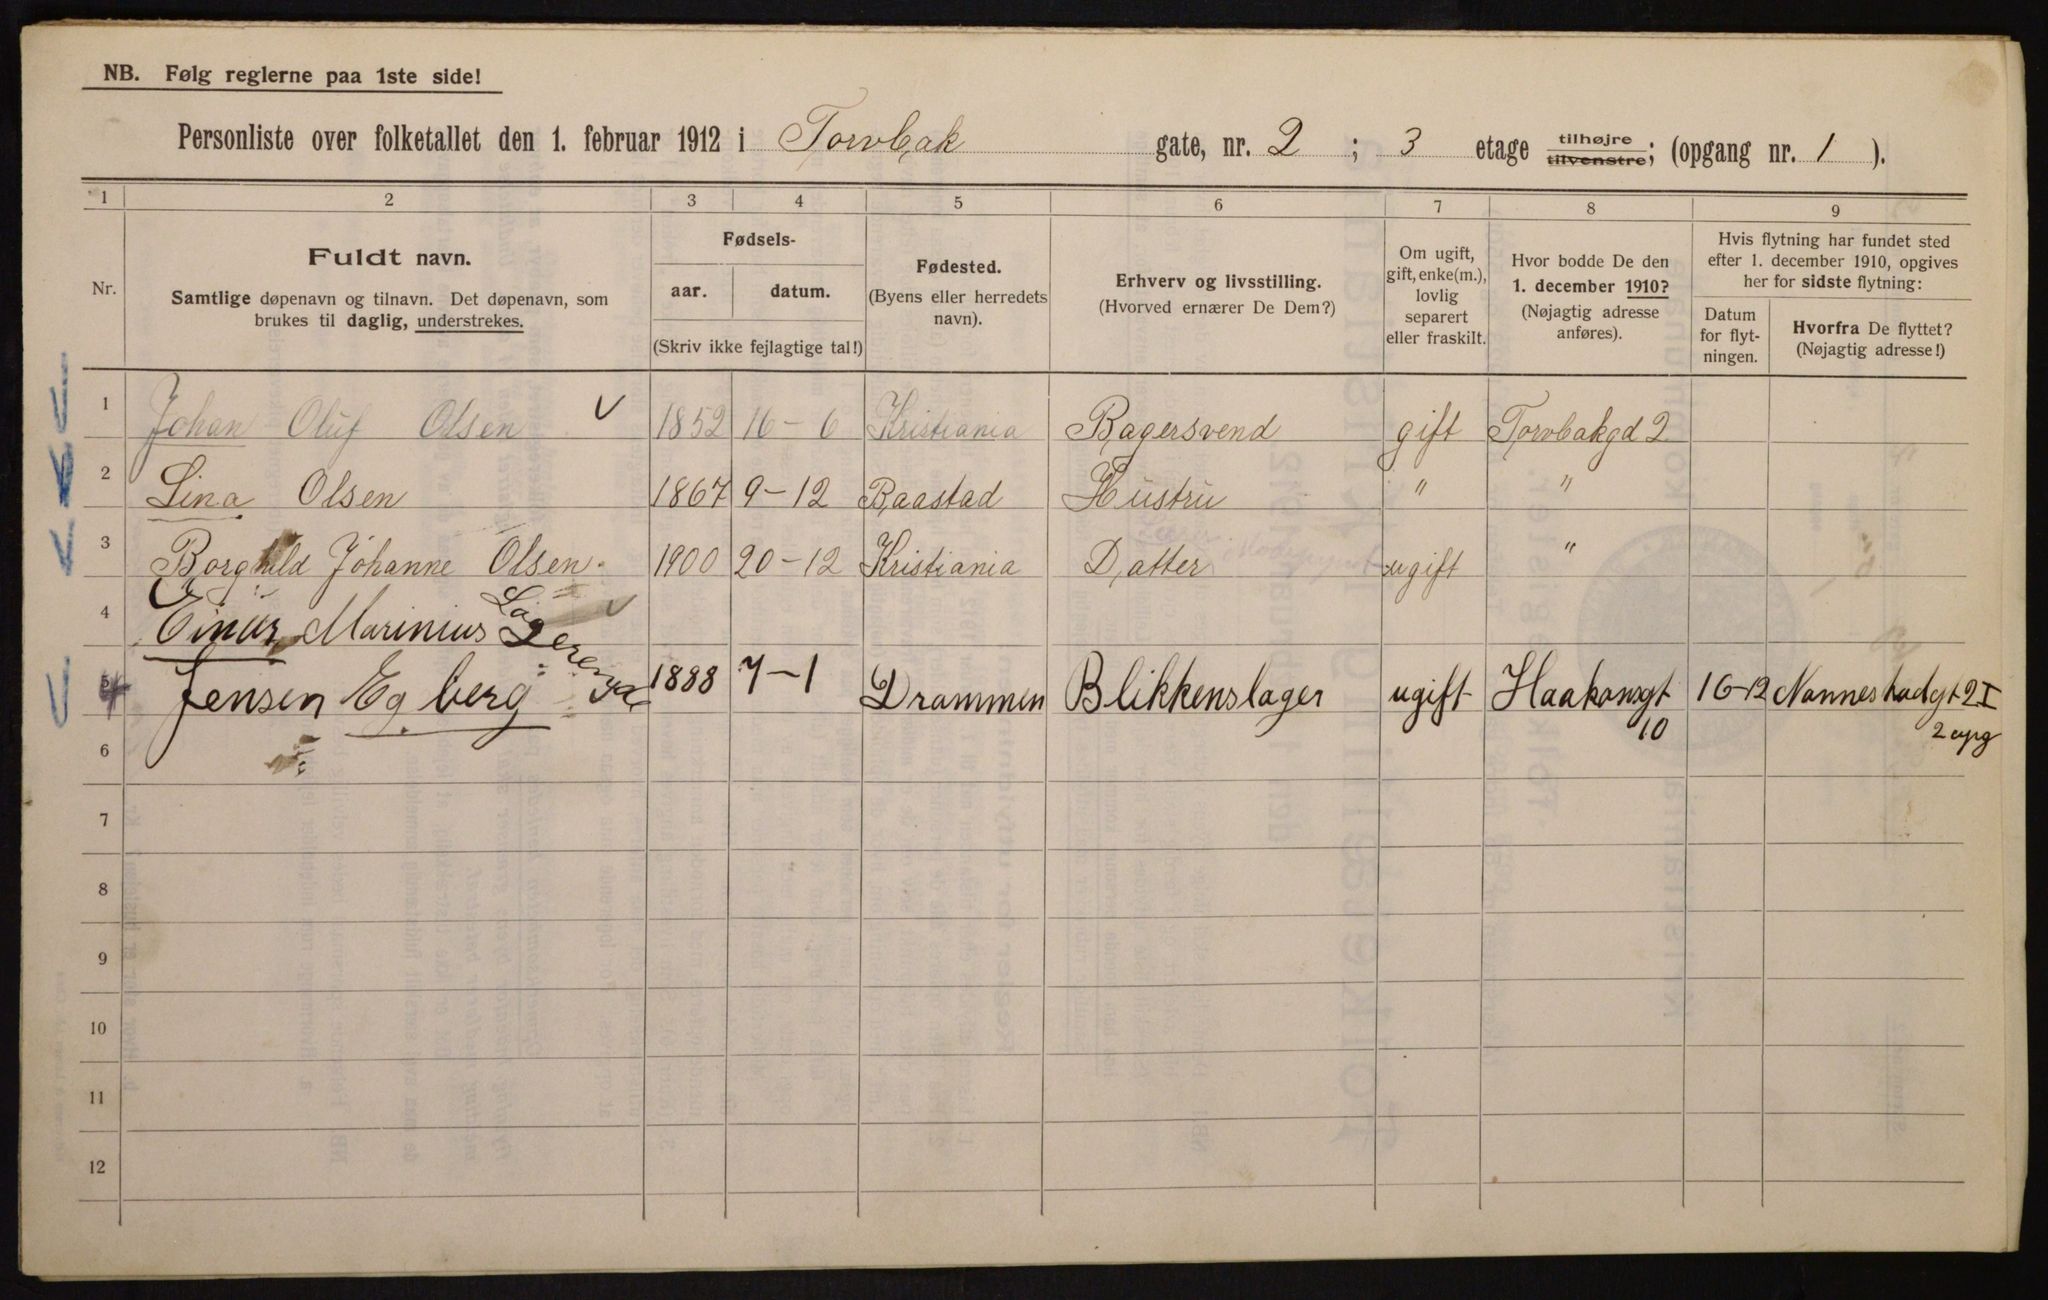 NB. Følg reglerne paa 1ste side!
Personliste over folketallet den 1. februar 1912 i Torvbak gate, nr. 2 ; 3 etage tilhøjre tilvenstre; (opgang nr. 1 ).
1 2 3 4 5 6 7 8 9
Nr.
Fuldt navn.
Samtlige døpenavn og tilnavn. Det døpenavn, som
brukes til daglig, understrekes.
Fødsels-
aar. datum.
(Skriv ikke fejlagtige tal!)
Fødested.
(Byens eller herredets
navn).
Erhverv og livsstilling.
(Hvorved ernærer De Dem?)
Om ugift,
gift, enke(m.),
lovlig
separert
eller fraskilt.
Hvor bodde De den
1. december 1910?
(Nøjagtig adresse
anføres).
Hvis flytning har fundet sted
efter 1. december 1910, opgives
her for sidste flytning:
Datum
for flyt-
ningen.
Hvorfra De flyttet?
(Nøjagtig adresse!)
1 Johan Oluf Olsen 1852 16-6 Kristiania Bagersvend gift Torvbakgd 2
2 Lina Olsen 1867 9-12 Baastad Hustru " "
3 Borghild Johanne Olsen 1900 20-12 Kristiania Datter ugift "
4 Einar Marinius
5 Jensen Egberg 1888 7-1 Drammen Blikkenslager ugift Haakonsgt 10 16-12 Nannestadgt 2 I
2 opg
6
7
8
9
10
11
12